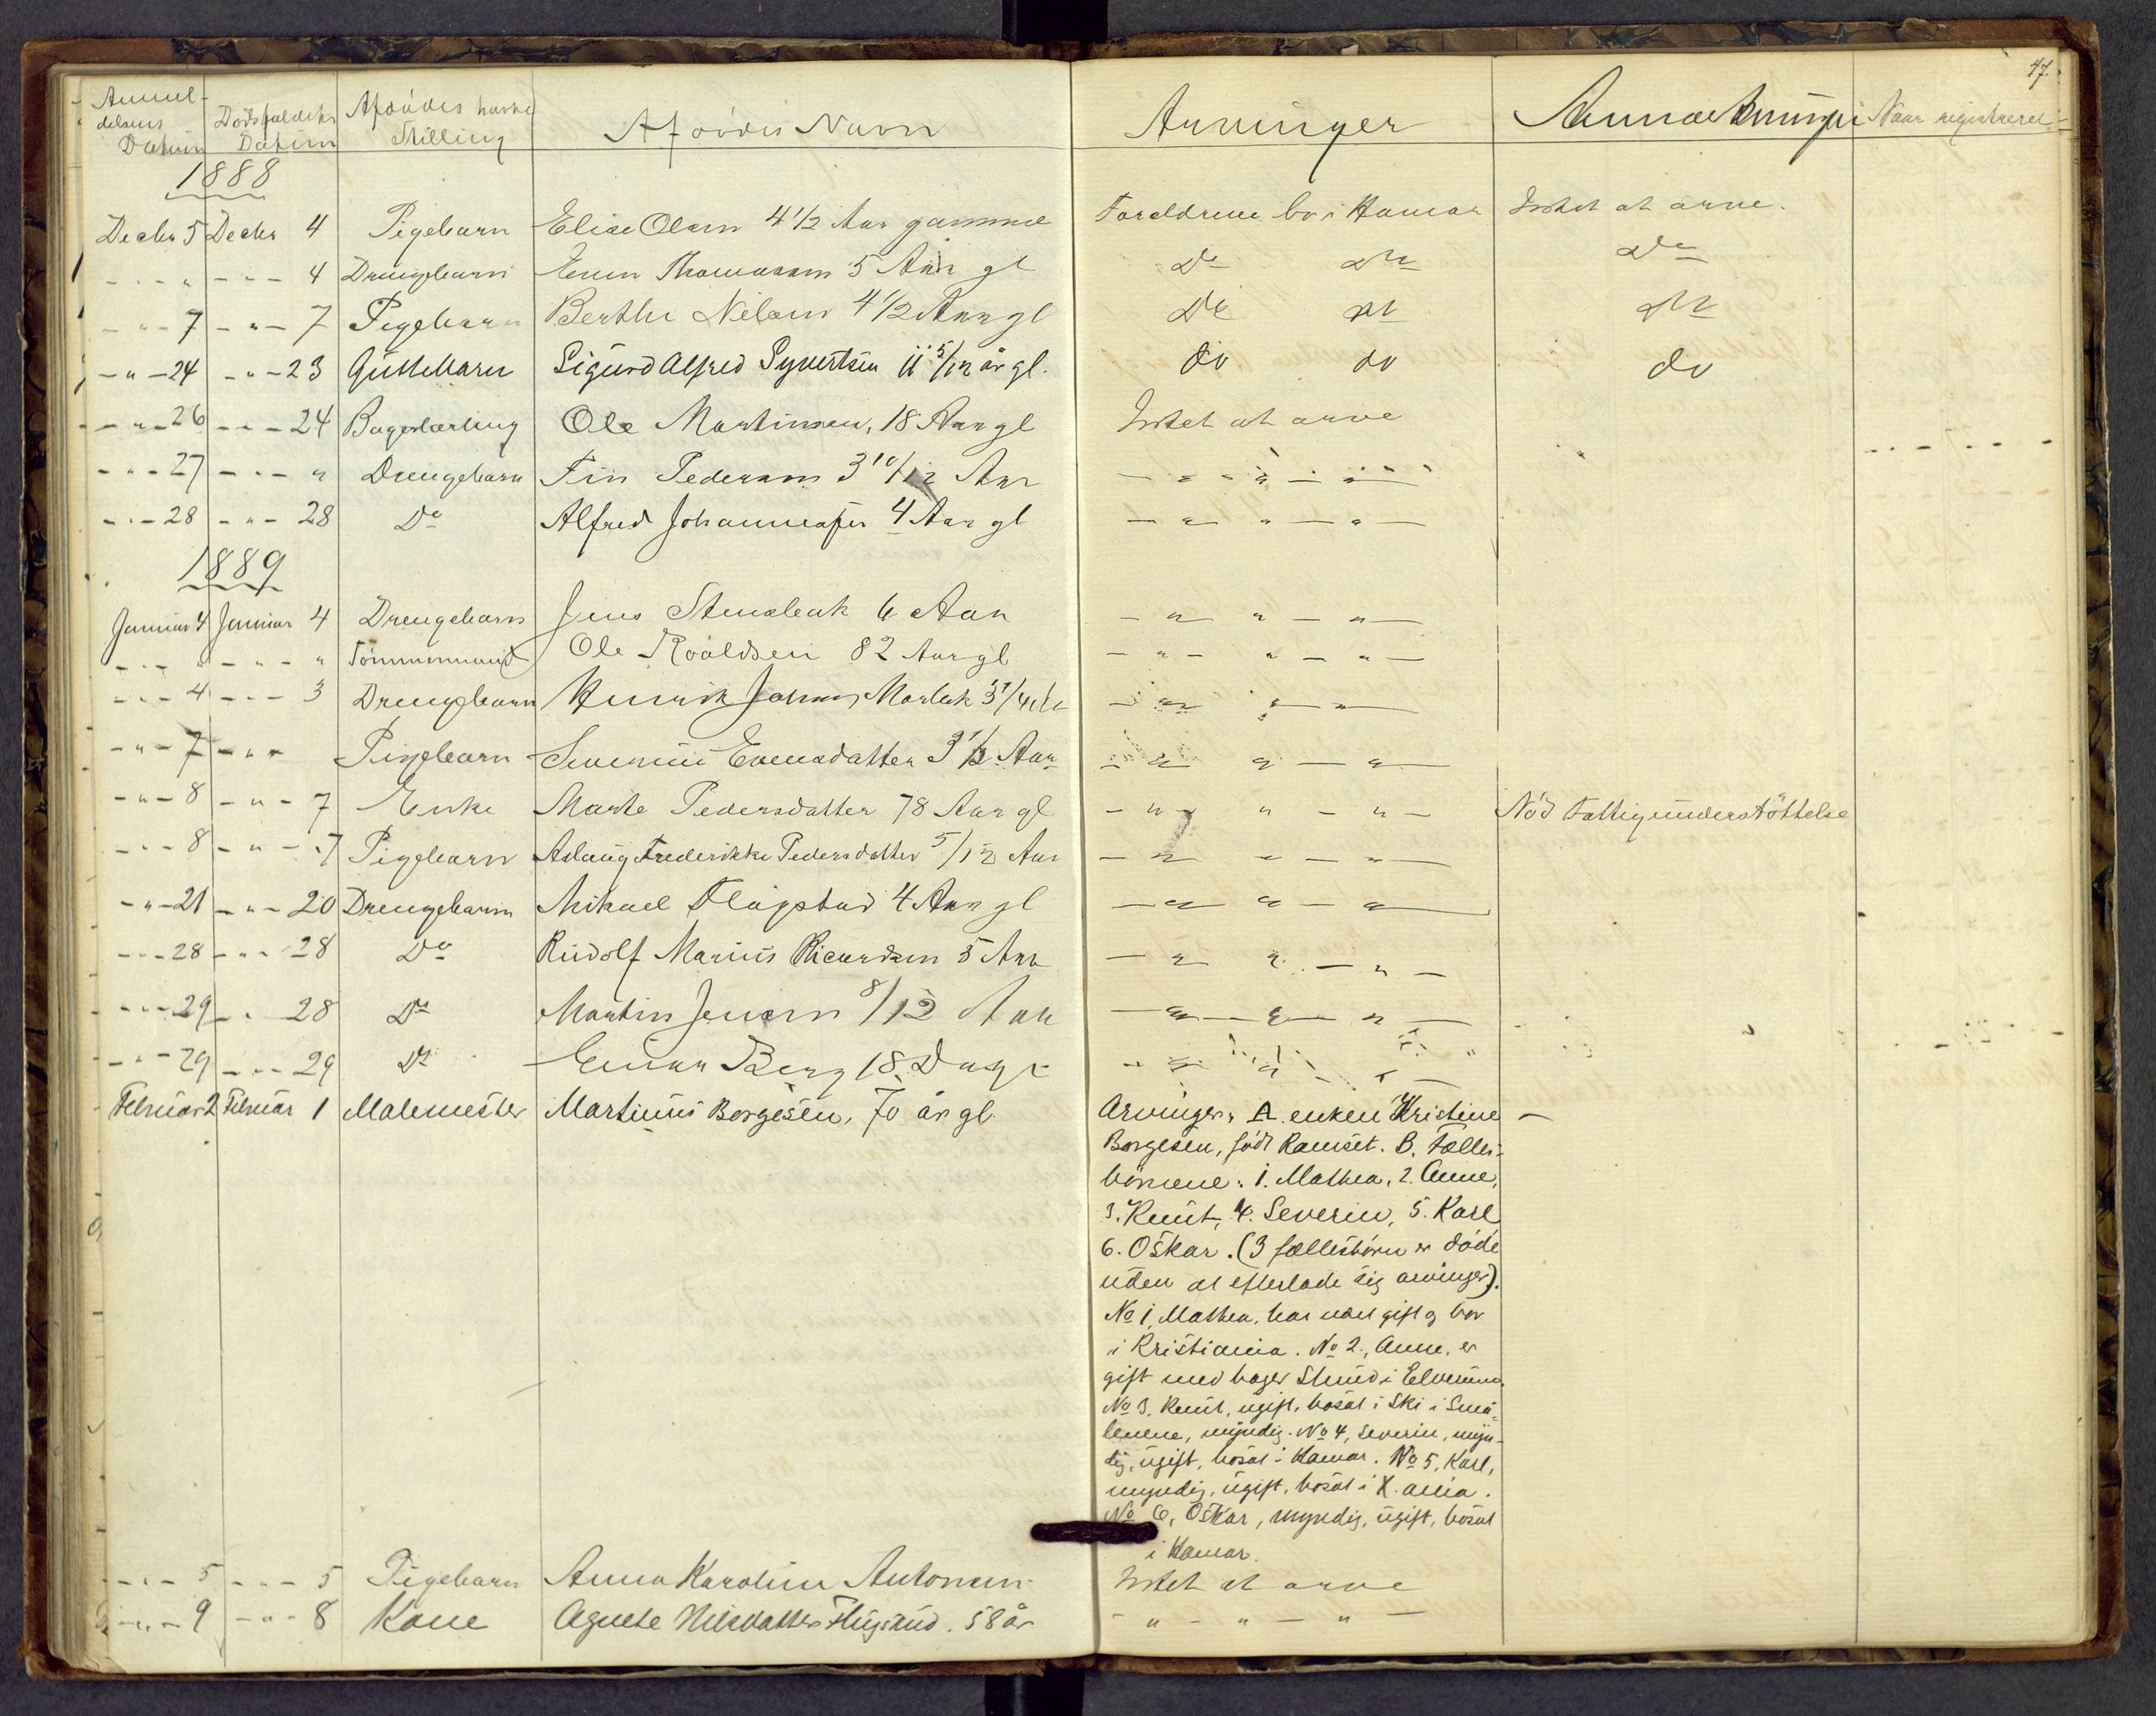 47.
Anmeldelsens Datum Dødsfaldets Datum Afdødes Navn Stilling Afdødes Navn Arvinger Anmærkninger Naar registreret
1888
Decbr 5 Decbr 4 Pigebarn Elise Olsen 4 1/2 Aar gammel Forældrene bo i Hamar Intet at arve.
- " - " - " - 4 Drengebarn Thomassen 5 Aar gl Do Do Do
- " - 7 - " - 7 Pigebarn Berthe Nilsen 4 1/2 Aar gl Do Do Do
- " - 24 - " - 23 Guttebarn Sigurd Alfred Syvertsen 5/12 år gl. do do do
- " - 26 - " - 24 Bagerlærling Ole Martinsen, 18 Aar gl Intet at arve
- " - 27 - " - " Drengebarn Fin Pedersen 3 10/12 Aar - " - " - "
- " - 28 - " - 28 Do Alfred Johannessen 4 Aar gl - " " - " -
1889
Januar 4 Januar 4 Drengebarn Jens 6 Aar - " " - " -
- " - " - " - " Tømmermand Ole Roaldsen 82 Aar gl - " - " - " -
- " - 4 - " - 3 Drengebarn Henrik - " " - " -
- " - 7 - " - " Pigebarn Evensdatter 3 1/2 Aar - " " - " -
- " - 8 - " - 7 Enke Marte Pedersdatter 78 Aar gl - " - " - " - Nød Fattigunderstøttelse
- " - 8 - " - 7 Pigebarn Aslaug Frederikke Pedersdatter 5/12 Aar - " " - " -
- " - 21 - " - 20 Drengebarn Mikael Flagstad 4 Aar gl - " " - " -
- " - 28 - " - 28 Do Rudolf Marius Ricardsen 5 Aar - " " - " -
- " - 29 - " - 28 Do Martin Jensen 8/12 Aar - " - " - " -
- " - 29 - " - 29 Do Einar Berg 18 Dage - " "
Februar 2 Februar 1 Malemester Martinus Borgesen, 70 år gl. Arvinger: A. enken Kristine -
Borgesen, født Ramset. B. Fælles-
børnene: 1. Mathea, 2. Anne,
3. Knut, 4. Severin, 5. Karl
6. Oskar. (3 fællesbørn er døde
uden at efterlade sig arvinger).
No 1, Mathea, har været gift og bor
i Kristiania. No 2., Anne, er
gift med bager Slund i Elverum.
No 3. Knut, ugift, bosat i Ski i Små-
lenene, myndig. No 4, Severin, myn-
dig, ugift, bosat i Hamar. No 5, Karl,
myndig, ugift, bosat i X.ania.
No 6, Oskar, myndig, ugift, bosat
i Hamar.
- " - 5 - " - 5 Pigebarn Anna Karoline Antonsen Intet at arve
- " - 9 - " - 8 Kone Agnete Nilsdatter 58 år - " - " - " -